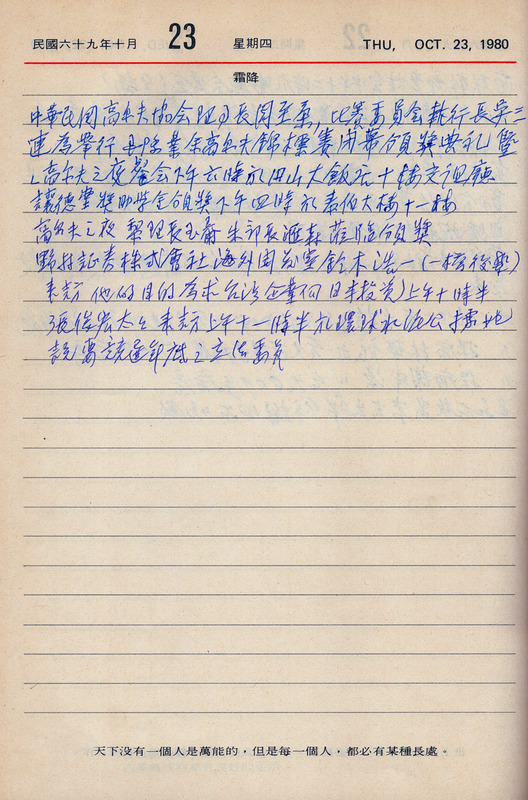 民國六十九年十月 23 星期四 THU, OCT. 23, 1980
霜降
中華民國高尔夫協会理事長周至柔，比賽委員会執行長吳三
連為舉行 業余高尔夫錦標賽閉幕頒獎典礼
高尔夫之夜餐会下午六時於円山大飯店十樓交誼廳
獎助金頒獎下午四時於泰伯大樓十一樓
高尔夫之夜 黎理長玉璽 朱部長滙森 蒞臨頒獎
野村証券株式會社海外 室鈴木浩一（一橋後輩）
来訪 他的目的為求台湾企業向日本投資）上午十時半
張俊宏太太来訪上午十一時半於環球水泥公 地
說要競選 立法委員
天下没有一個人是萬能的，但是每一個人，都必有某種長處。